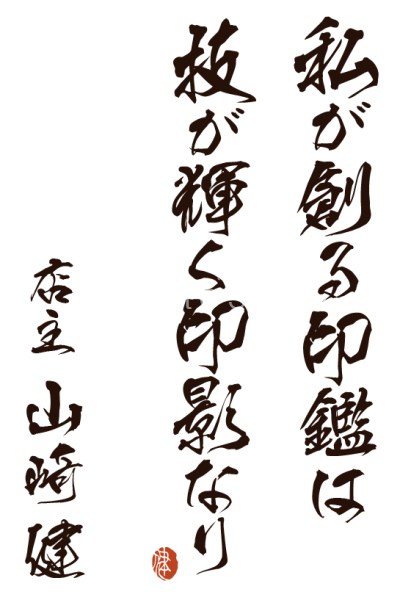 私が創る印鑑は
技が輝く印影なり
店主 山﨑健
健